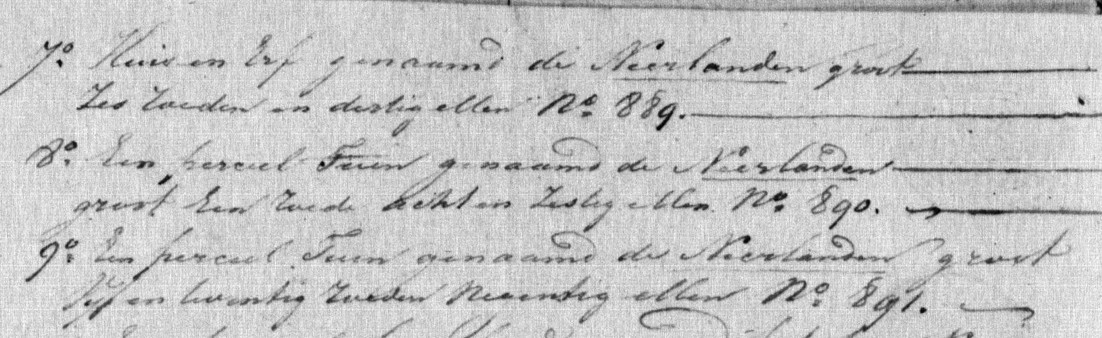 7o. Huis en Erf genaamd de Neerlanden groot
Zes roeden en dertig ellen No. 889.
8o. Een perceel Tuin genaamd de Neerlanden
groot Een roede acht en Zestig ellen No. 890.
9o. Een perceel Tuin genaamd de Neerlanden groot
Vijf en twentig roeden Negentig ellen No. 891.